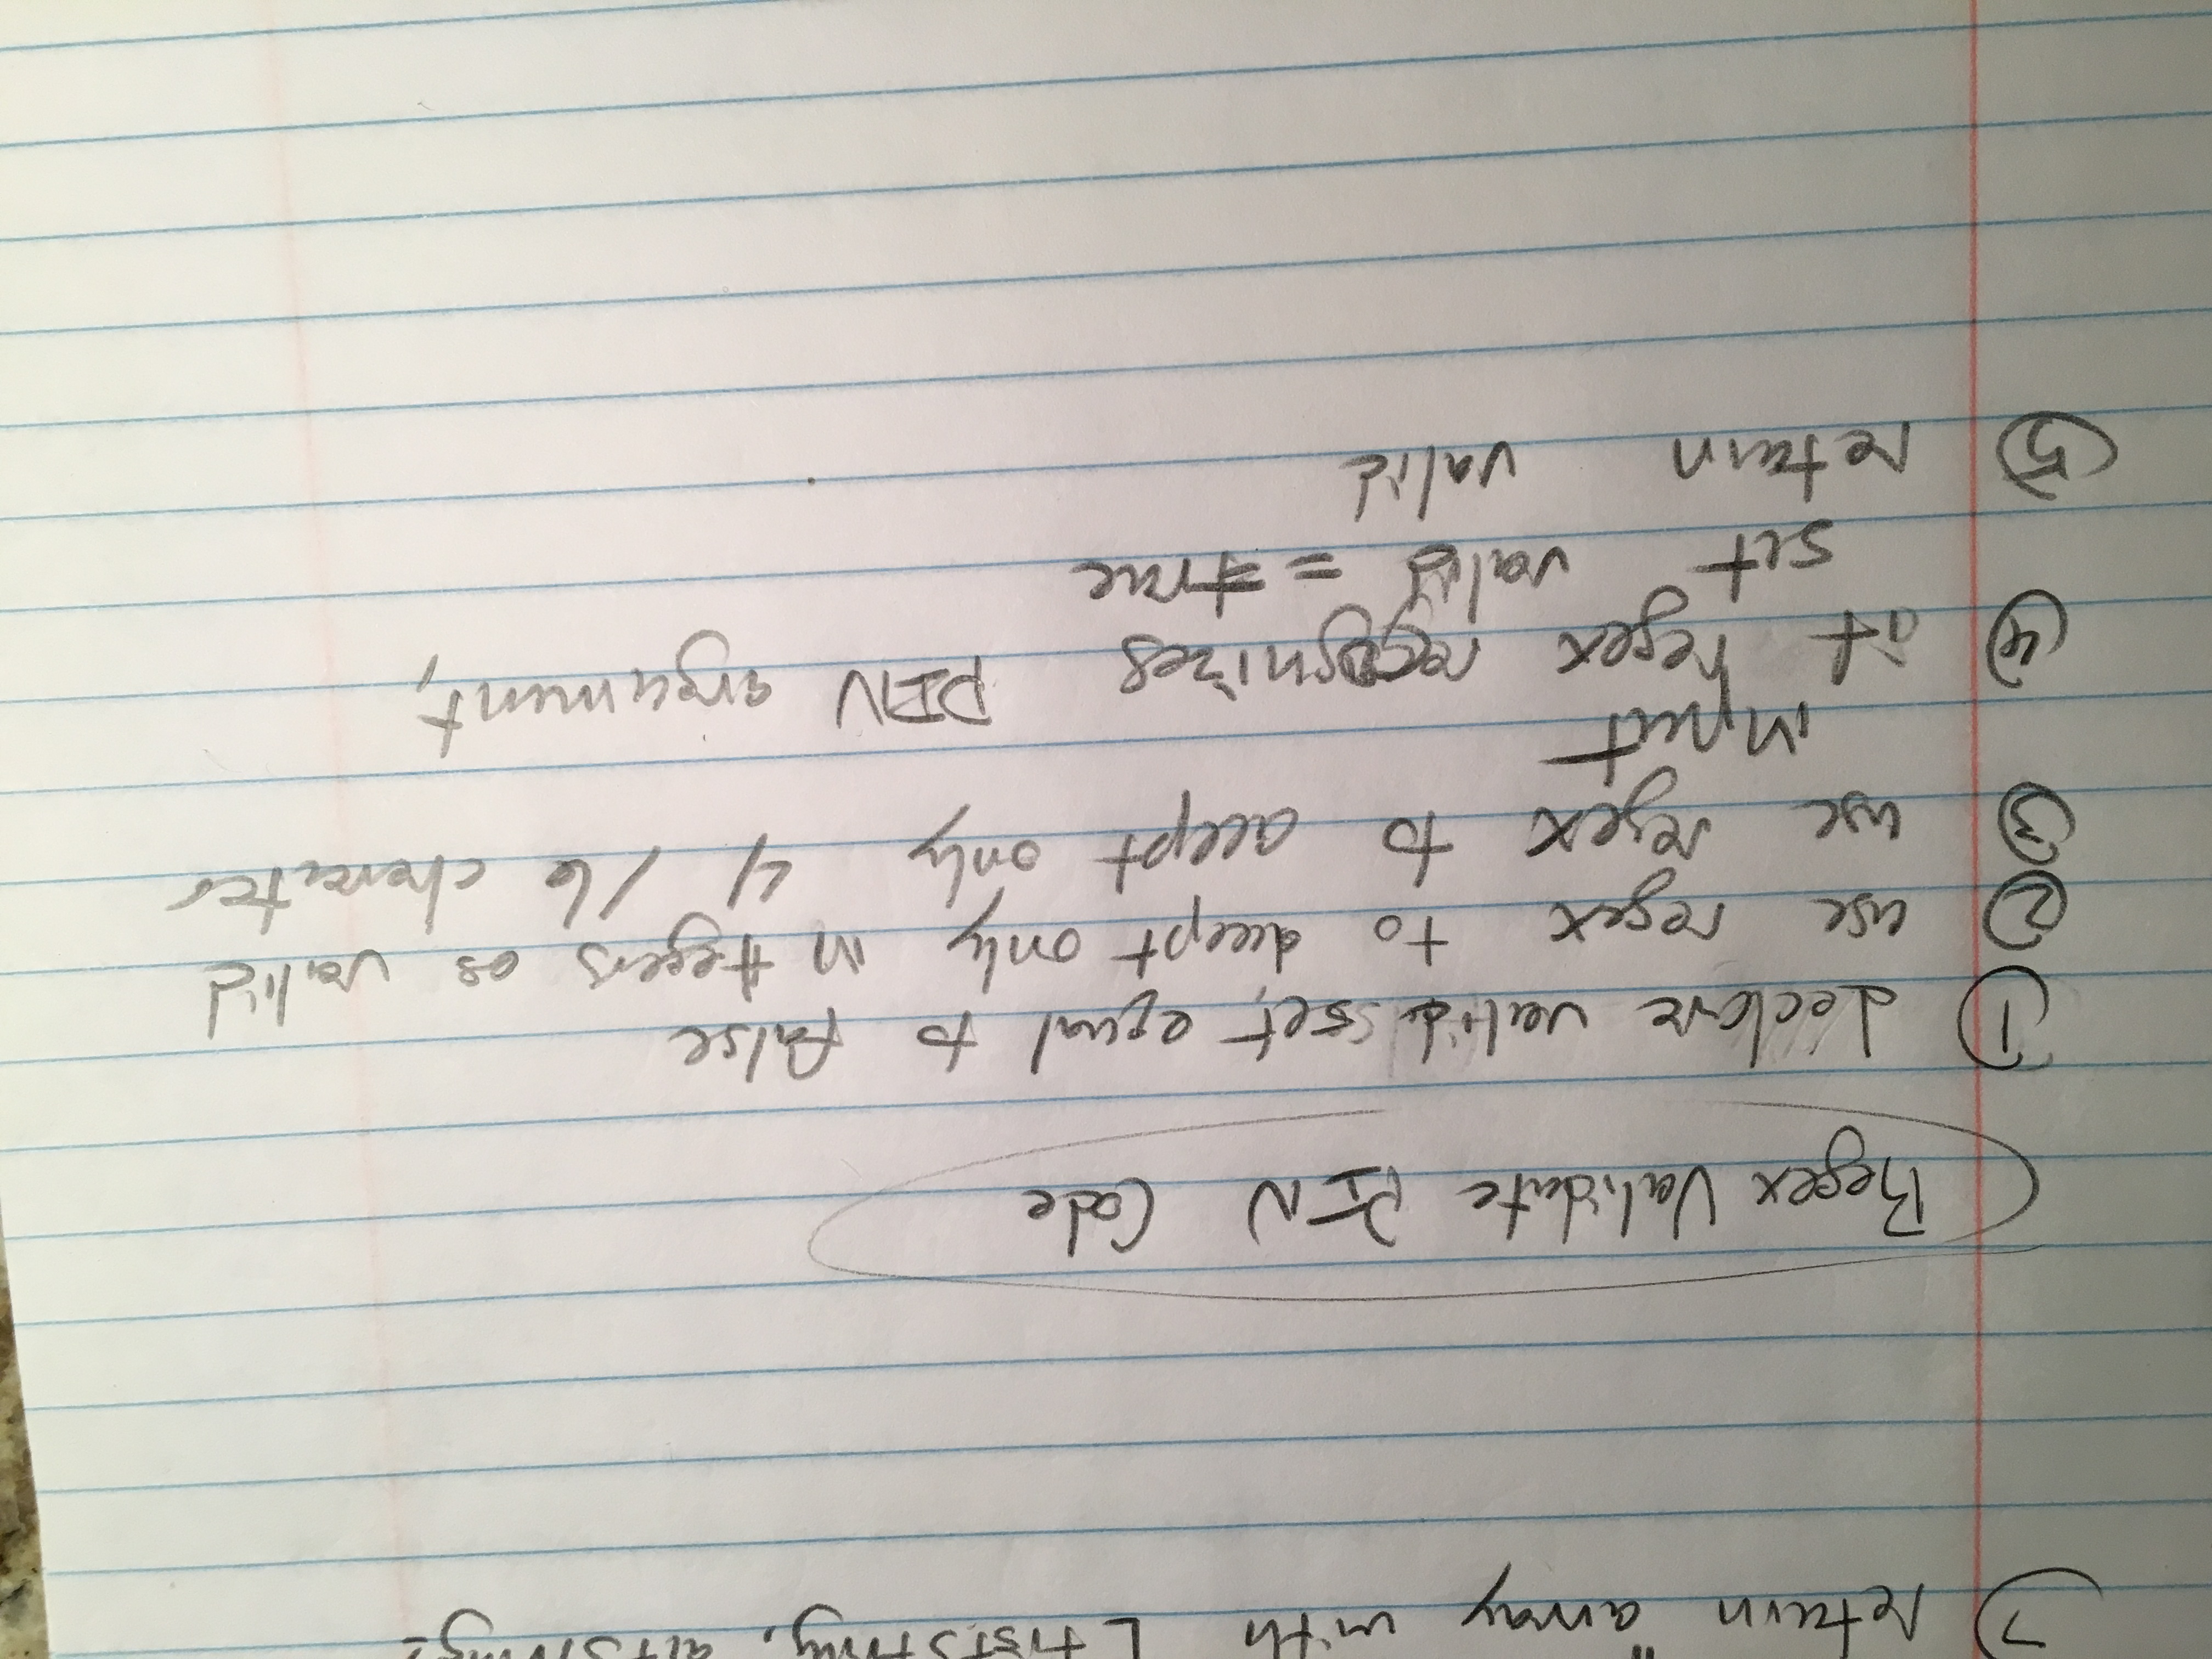 7) return array with [ firstString, altString]
Regex Validate PIN Code
① declare valid, set equal to false
② use regex to accept only integers as valid
③ use regex to accept only 4/6 charater
input
④ if regex recognizes PIN argument,
set valid = true
⑤ return valid